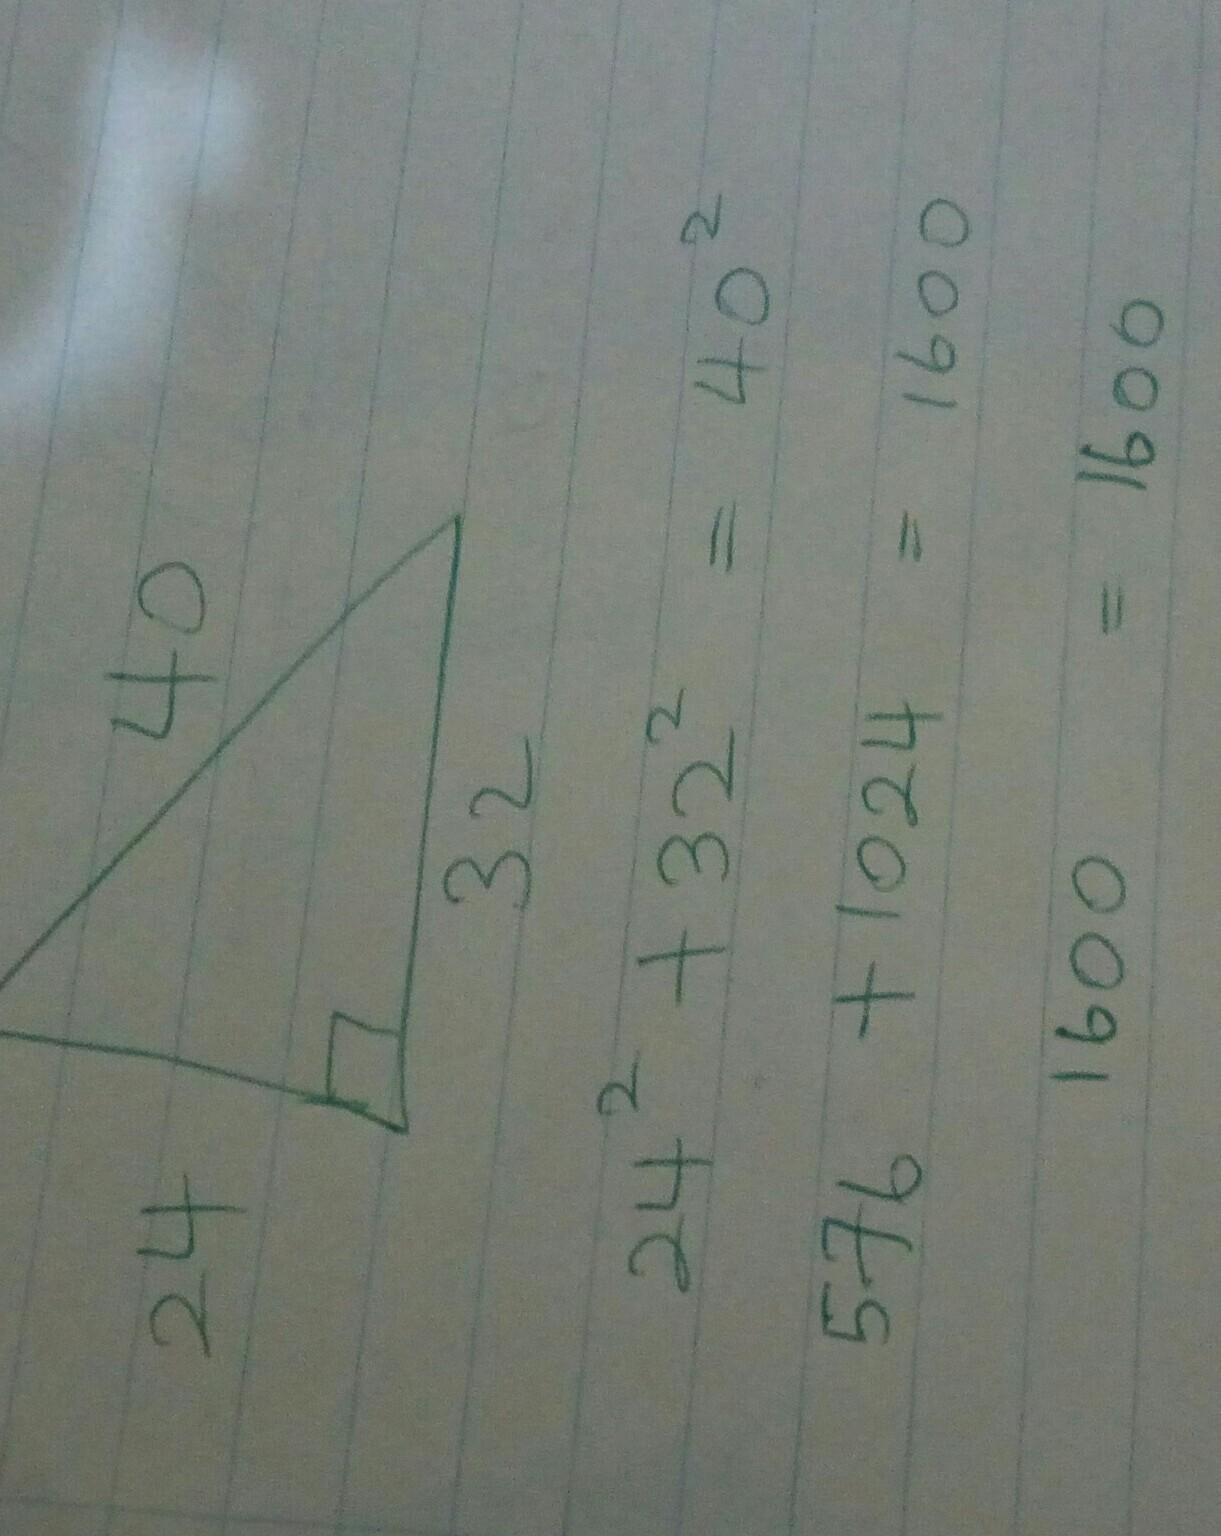 24
40
32
24² + 32² = 40²
576 + 1024 = 1600
1600 = 1600